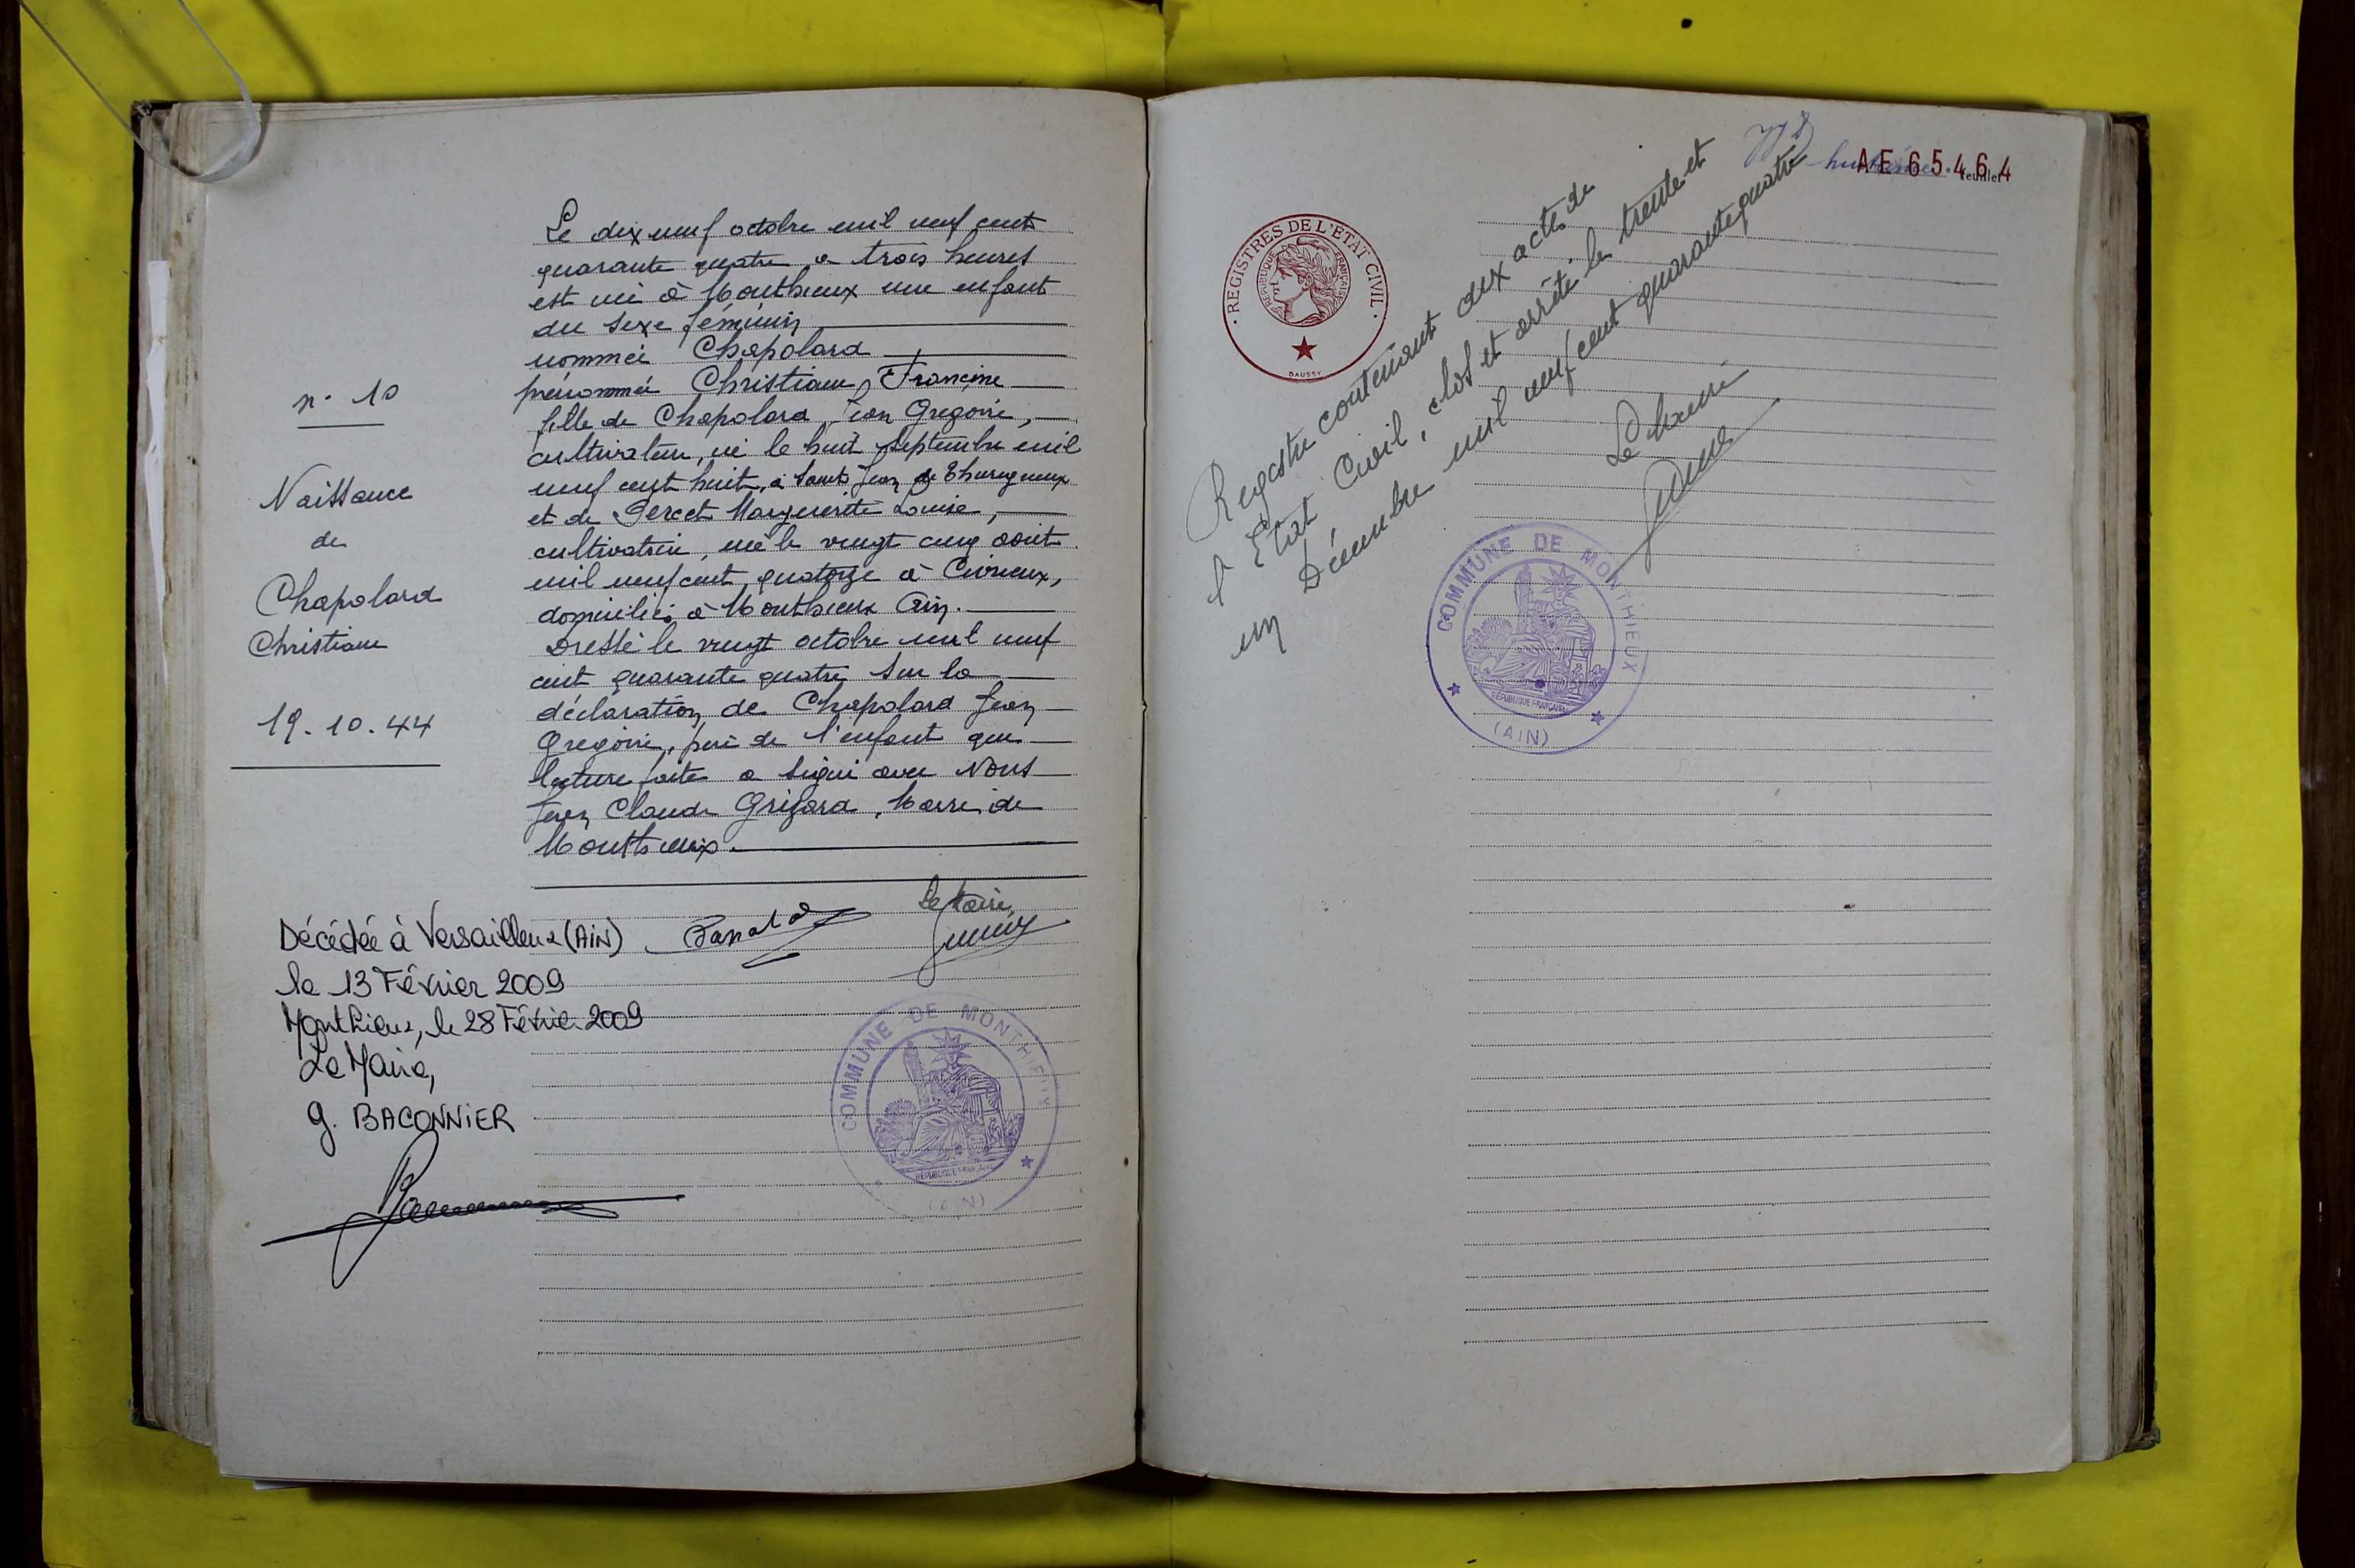 n° 10
Naissance
de
Chapolard
Christiane
19.10.44
Le dix neuf octobre mil neuf cent
quarante quatre, a trois heures
est née à Monthieux une enfant
du sexe féminin
nommée Chapolard
prénommée Christiane, Francine
fille de Chapolard Jean Gregoire,
cultivateur, né le huit septembre mil
neuf cent huit, à Saint Jean de Thurigneux
et de Percet Marguerite Louise,
cultivatrice, née le vingt cinq août
mil neuf cent quatorze à Civrieux,
domiciliés à Monthieux Ain.
Dressé le vingt octobre mil neuf
cent quarante quatre sur la
déclaration de Chapolard Jean
Gregoire, père de l'enfant que
lecture faite a signé avec Nous
Jean Claude Grifard, Maire de
Monthieux.
Le Maire,
Décédée à Versailleux (AIN)
le 13 Février 2009
Monthieux, le 28 Février 2009
Le Maire,
G. BACONNIER
COMMUNE DE MONTHIEUX
RÉPUBLIQUE FRANÇAISE
(AIN)
AE 65464
feuillet
REGISTRES DE L'ÉTAT CIVIL
RÉPUBLIQUE FRANÇAISE
DAUSSY
Registre contenant dix actes de
l'Etat Civil, clos et arrêté le trente et
un Décembre mil neuf cent quarante quatre
Le Maire
COMMUNE DE MONTHIEUX
RÉPUBLIQUE FRANÇAISE
(AIN)